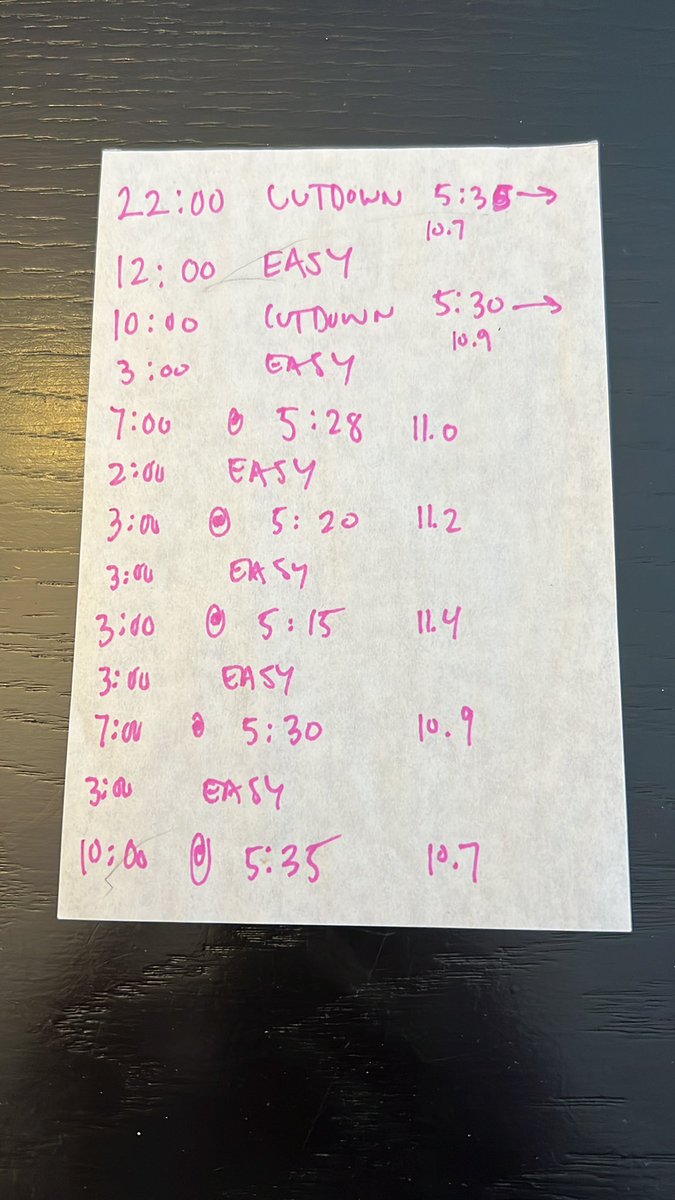 22:00 CUTDOWN 5:35→
10.7
12:00 EASY
10:00 CUTDOWN 5:30→
10.9
3:00 EASY
7:00 @ 5:28 11.0
2:00 EASY
3:00 @ 5:20 11.2
3:00 EASY
3:00 @ 5:15 11.4
3:00 EASY
7:00 @ 5:30 10.9
3:00 EASY
10:00 @ 5:35 10.7